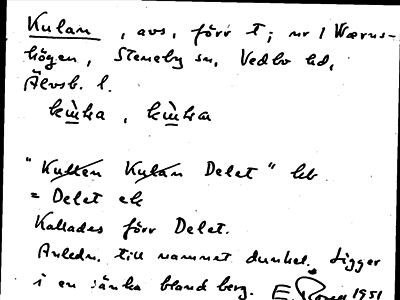 Kulan, avs, förr t; nr 1 Wærns-
högen, Steneby sn, Vedbo hd,
Älvsb. l.
"Kullen Kulan Delet" hb
= Delet ek
Kallades förr Delet.
Anledn. till namnet dunkel. Ligger
i en sänka bland berg. E 1951